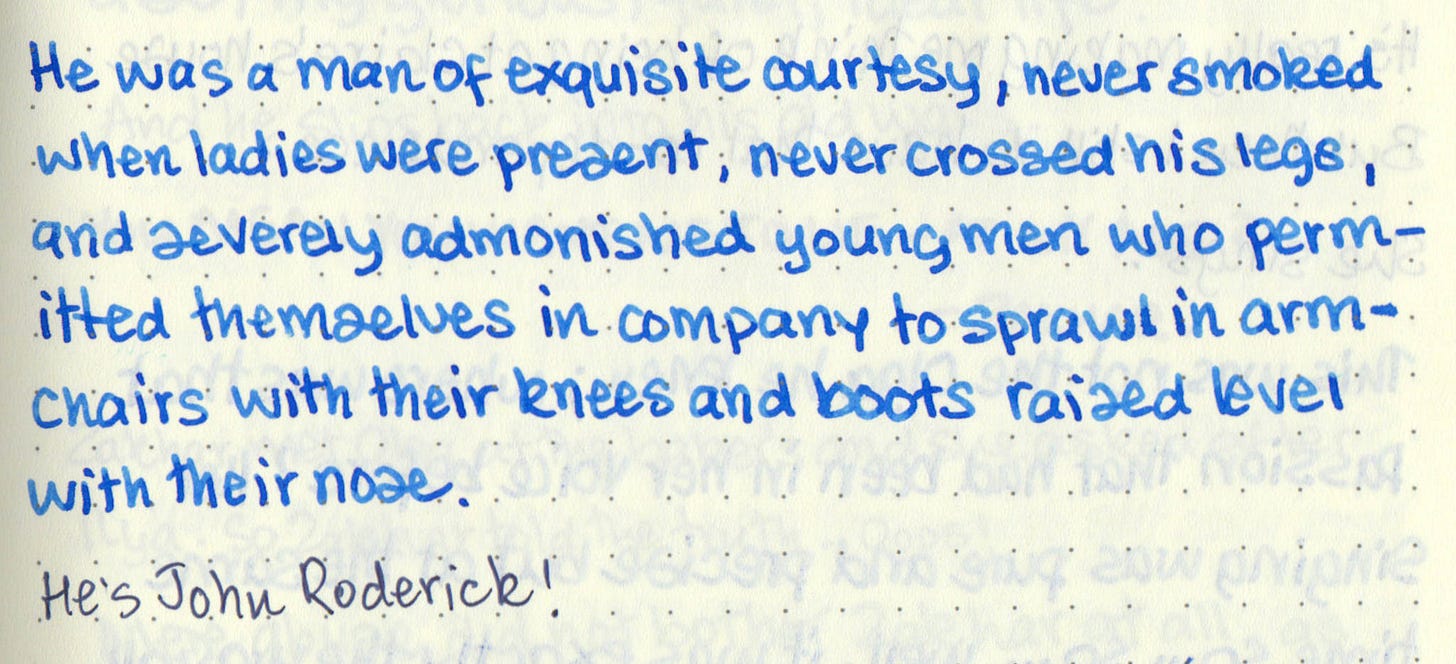 He was a man of exquisite courtesy, never smoked
when ladies were present, never crossed his legs,
and severely admonished young men who perm-
itted themselves in company to sprawl in arm-
chairs with their knees and boots raised level
with their nose.
He's John Roderick!